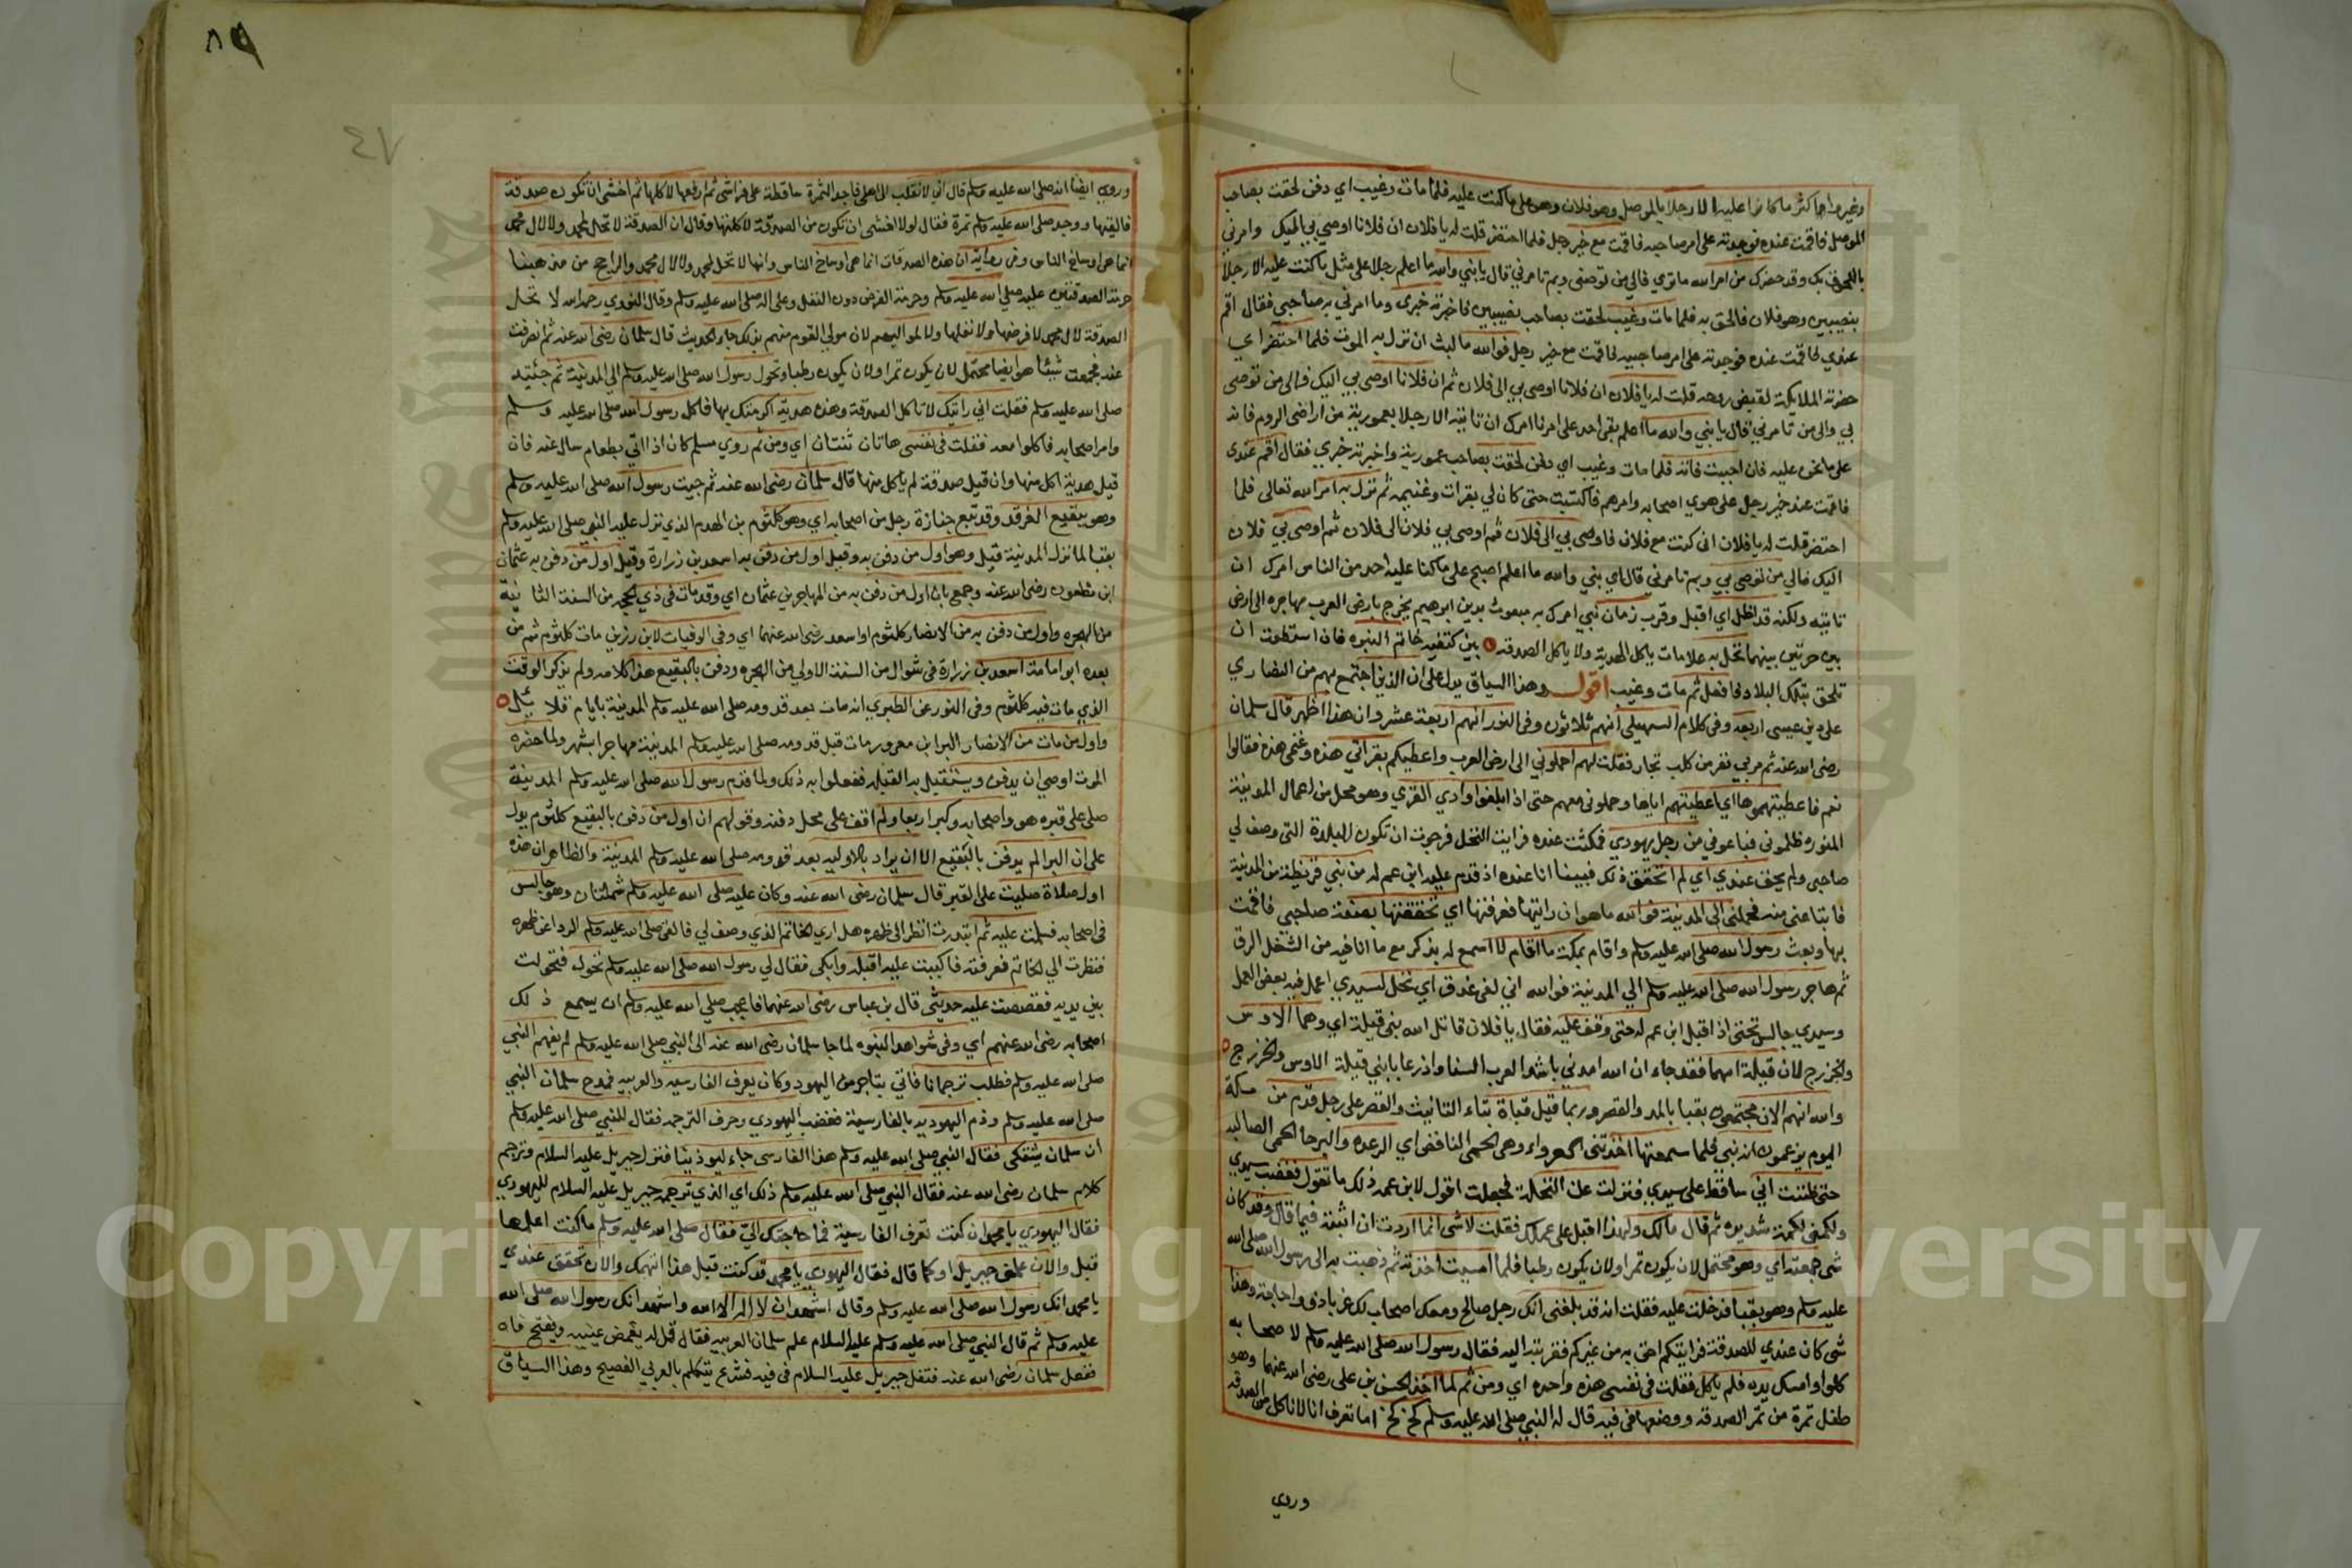 وغيروا اكثر ما كانوا عليه الا رجلا بالموصل وهو فلان وهو على ما كنت عليه فلما مات وغيب اي دفن لحقت بصاحب
الموصل فاقمت عنده فوجدته على امر صاحبه فاقمت مع خير رجل فلما احتضر قلت له يا فلان ان فلانا اوصي بي اليك وامرني
باللحوق بك وقد حضرك من امر الله ما تري فالي من توصي وبم تامرني قال يا بني والله ما اعلم رجلا على مثل ما كنت عليه الا رجلا
بنصيبين وهو فلان فالحق به فلما مات وغيب لحقت بصاحب نصيبين فاخبرته خبرى وما امرني به صاحبي فقال اقم
عندي فاقمت عنده فوجدته على امر صاحبيه فاقمت مع خير رجل فوالله ما لبث ان نزل به الموت فلما احتضر اي
حضرته الملايكة لقبض روحه قلت له يا فلان ان فلانا اوصى بي الى فلان ثم ان فلانا اوصى بي اليك فالى من توصى
بي والى من تامرني قال يا بني والله ما اعلم بقى احد على امرنا امرك ان تاتيه الا رجلا بعمورية من اراضى الروم فانه
على ما نحن عليه فان احببت فاته فلما مات وغيب اي دفن لحقت بصاحب عمورية واخبرته خبري فقال اقم عندى
فاقمت عند خير رجل على هدي اصحابه وامرهم فاكتسبت حتى كان لي بقرات وغنيمه ثم نزل به امر الله تعالى فلما
احتضر قلت له يا فلان اني كنت مع فلان فاوصى بي الى فلان ثم اوصى بي فلان الى فلان ثم اوصى بي فلان
اليك فالي من توصي بي وبم تامرني قال اي بني والله ما اعلم اصبح على ما كنا عليه احد من الناس امرك ان
تاتيه ولكنه قد اظل اي اقبل وقرب زمان نبي امرك به مبعوث بدين ابرهيم يخرج بارض العرب مهاجره الى ارض
بين حرتين بينهما نخل به علامات ياكل الهدية ولا ياكل الصدقه بين كتفيه خاتم النبوه فان استطعت ان
تلحق بتلك البلاد فافعل ثم مات وغيب اقول وهذا السياق يدل على ان الذين اجتمع بهم من النصاري
على دين عيسى اربعه وفى كلام السهيلى انهم ثلاثون وفى النور انهم اربعة عشر وان هذا اظهر قال سلمان
رضى الله عنه ثم مر بي نفر من كلب تجار فقلت لهم احملوني الى ارض العرب واعطيكم بقراتي هذه وغنمى هذه فقالوا
نعم فاعطيتهموها اي اعطيتهم اياها وحملوني معهم حتى اذا بلغوا وادي القري وهو محل من اعمال المدينة
المنوره ظلموني فباعوني من رجل يهودي فمكثت عنده فرايت النخل فرجوت ان تكون البلدة التى وصف لي
صاحبي ولم يحق عندي اي لم اتحقق ذلك فبينا انا عنده اذ قدم عليه ابن عم له من بني قريظة من المدينة
فابتاعني منه فحملني الى المدينة فوالله ما هو ان رايتها فعرفتها اي تحققتها بصفة صاحبي فاقمت
بها وبعث رسول الله صلى الله عليه وسلم واقام بمكة ما اقام لا اسمع له بذكر مع ما انا فيه من الشغل الرق
ثم هاجر رسول الله صلى الله عليه وسلم الي المدينة فوالله اني لفى عذق اي نخل لسيدي اعمل فيه بعض العمل
وسيدي جالس تحتى اذ اقبل ابن عم له حتى وقف عليه فقال يا فلان قاتل الله بني قيلة اي وهما الاوس
والخزرج لان قيلة امهما فقد جاء ان الله امدني باشد العرب السنا واذرعا بابني قيلة الاوس والخزرج
والله انهم الان مجتمعون بقبا بالمد والقصر وربما قيل قباة بتاء التانيث والقصر على رجل قدم من مكة
اليوم يزعمون انه نبي فلما سمعتها اخذتني العرواء وهى الحمى النافض اي الرعده والبرحا الحمى الصالبه
حتى ظننت اني ساقط على سيدي فنزلت عن النخلة فجعلت اقول لابن عمه ذلك ما تقول فغضب سيدي
ولكمنى لكمة شديده ثم قال مالك ولهذا اقبل على عملك فقلت لا شى انما اردت ان اثبته فيما قال وقد كان
شى جمعته اي وهو محتمل لان يكون تمرا ولان يكون رطبا فلما امسيت اخذته ثم ذهبت به الى رسول الله صلى الله
عليه وسلم وهو بقبا فدخلت عليه فقلت انه قد بلغنى انك رجل صالح ومعك اصحاب لك غربا ذوو حاجة وهذا
شى كان عندي للصدقة فرايتكم احق به من غيركم فقربته اليه فقال رسول الله صلى الله عليه وسلم لاصحابه
كلوا وامسك يده فلم ياكل فقلت فى نفسى هذه واحده اي ومن ثم لما اخذ الحسن بن على رضى الله عنهما وهو
طفل تمرة من تمر الصدقه ووضعها فى فيه قال له النبي صلى الله عليه وسلم كخ كخ اما تعرف انا لا ناكل من الصدقه
وروي
٨٩
٤٧
وروي ايضا انه صلى الله عليه وسلم قال اني لانقلب الى اهلى فاجد التمرة ساقطة على فراشى ثم ارفعها لاكلها ثم اخشى ان تكون صدقة
فالقيها ووجد صلى الله عليه وسلم تمرة فقال لولا اخشى ان تكون من الصدقة لاكلتها وقال ان الصدقة لا تحل لمحمد ولا لال محمد
انما هى اوساخ الناس وفى رواية ان هذه الصدقات انما هى اوساخ الناس وانها لا تحل لمحمد ولا لال محمد والراجح من مذهبنا
حرمة الصدقتين عليه صلى الله عليه وسلم وحرمة الفرض دون النفل وعلى اله صلى الله عليه وسلم وقال الثوري رحمه الله لا تحل
الصدقة لال محمد لا فرضها ولا نفلها ولا لمواليهم لان مولي القوم منهم بذلك جاء الحديث قال سلمان رضى الله عنه ثم انصرفت
عنه فجمعت شيئا هو ايضا محتمل لان يكون تمرا ولان يكون رطبا وتحول رسول الله صلى الله عليه وسلم الى المدينة ثم جئته
صلى الله عليه وسلم فقلت اني رايتك لا تاكل الصدقة وهذه هدية اكرمتك بها فاكل رسول الله صلى الله عليه وسلم
وامر اصحابه فاكلوا معه فقلت فى نفسى هاتان ثنتان اي ومن ثم روي مسلم كان اذا اتي بطعام سال عنه فان
قيل هدية اكل منها وان قيل صدقة لم ياكل منها قال سلمان رضى الله عنه ثم جيت رسول الله صلى الله عليه وسلم
وهو ببقيع الغرقد وقد تبع جنازة رجل من اصحابه اي وهو كلثوم بن الهدم الذي نزل عليه النبي صلى الله عليه وسلم
بقبا لما نزل المدينة قيل وهو اول من دفن به وقيل اول من دفن به اسعد بن زرارة وقيل اول من دفن به عثمان
ابن مظعون رضى الله عنه وجمع بان اول من دفن به من المهاجرين عثمان اي وقد مات فى ذي الحجه من السنة الثانية
من الهجره واول من دفن به من الانصار كلثوم او اسعد رضى الله عنهما اي وفى الوفيات لابن زبر مات كلثوم ثم من
بعده ابو امامة اسعد بن زرارة فى شوال من السنة الاولى من الهجره ودفن بالبقيع هذا كلامه ولم يذكر الوقت
الذي مات فيه كلثوم وفى النور عن الطبري انه مات بعد قدومه صلى الله عليه وسلم المدينة بايام قلائل
واول من مات من الانصار البرا بن معرور مات قبل قدومه صلى الله عليه وسلم المدينة مهاجرا بشهر ولما حضره
الموت اوصى ان يدفن ويستقبل به القبله ففعلوا به ذلك ولما قدم رسول الله صلى الله عليه وسلم المدينة
صلى على قبره هو واصحابه وكبر اربعا ولم اقف على محل دفنه وقولهم ان اول من دفن بالبقيع كلثوم يدل
على ان البرا لم يدفن بالبقيع الا ان يراد بالاوليه بعد قدومه صلى الله عليه وسلم المدينة والظاهر ان هذه
اول صلاة صليت على القبر قال سلمان رضى الله عنه وكان عليه صلى الله عليه وسلم شملتان وهو جالس
فى اصحابه فسلمت عليه ثم ابتدرت انظر الى ظهره هل اري الخاتم الذي وصف لي فالقى صلى الله عليه وسلم الرداء عن ظهره
فنظرت الي الخاتم فعرفته فاكببت عليه اقبله وابكى فقال لي رسول الله صلى الله عليه وسلم تحول فتحولت
بين يديه فقصصت عليه حديثى قال بن عباس رضى الله عنهما فاعجب صلى الله عليه وسلم ان يسمع ذلك
اصحابه رضى الله عنهم اي وفى شواهد النبوه لما جا سلمان رضى الله عنه الى النبي صلى الله عليه وسلم لم يفهم النبي
صلى الله عليه وسلم فطلب ترجمانا فاتي بتاجر من اليهود وكان يعرف الفارسيه والعربيه فمدح سلمان النبي
صلى الله عليه وسلم وذم اليهود بالفارسية فغضب اليهودي وحرف الترجمه فقال للنبي صلى الله عليه وسلم
ان سلمان يشتمك فقال النبي صلى الله عليه وسلم هذا الفارسى جاء ليوذينا فنزل جبريل عليه السلام وترجم
كلام سلمان رضى الله عنه فقال النبي صلى الله عليه وسلم ذلك اي الذي ترجمه جبريل عليه السلام لليهودي
فقال اليهودي يا محمد ان كنت تعرف الفارسية فما حاجتك الي فقال صلى الله عليه وسلم ما كنت اعلمها
قبل والان علمنى جبريل او كما قال فقال اليهودي يا محمد قد كنت قبل هذا اتهمك والان تحقق عندي
يا محمد انك رسول الله صلى الله عليه وسلم وقال اشهد ان لا اله الا الله واشهد انك رسول الله صلى الله
عليه وسلم ثم قال النبي صلى الله عليه وسلم عليه السلام علم سلمان العربيه فقال قل له يغمض عينيه ويفتح فاه
ففعل سلمان رضى الله عنه فتفل جبريل عليه السلام فى فيه فشرع يتكلم بالعربي الفصيح وهذا السياق
Copyright © King Saud University